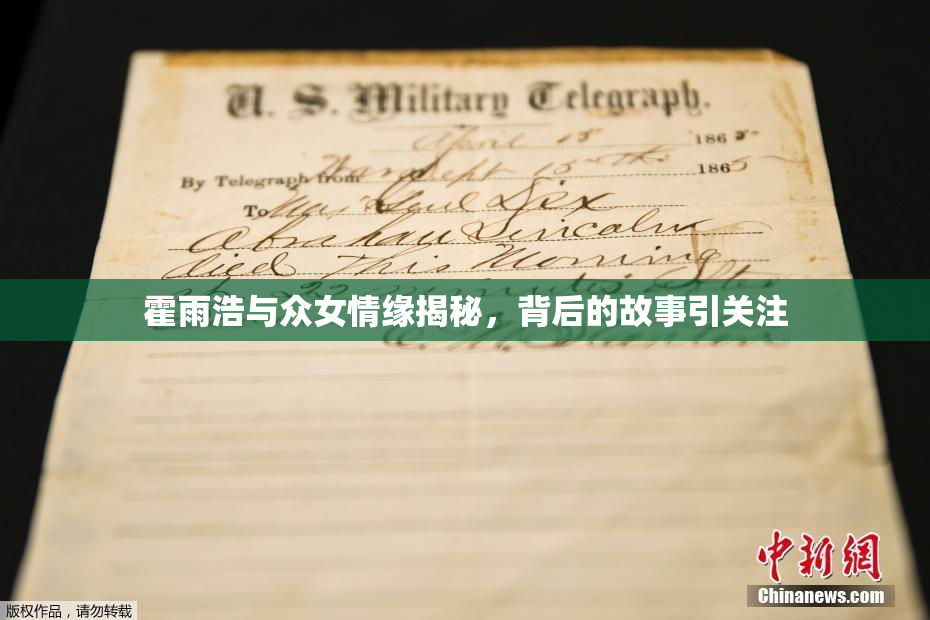 U. S. Military Telegraph.
April 15 1865
By Telegraph from War Dept 15th 1865
To Maj Genl Dix
Abraham Lincoln
died This Morning
at 22 minutes after
霍雨浩与众女情缘揭秘，背后的故事引关注
E. M. Stanton
中新網
Chinanews.com
版权作品，请勿转载